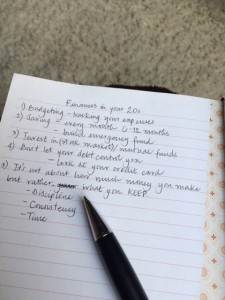 Finances in your 20s
1) Budgeting - tracking your expenses
2) Saving - every month 6-12 months
- build emergency fund
3) Invest in (stock market)/mutual funds
4) Don't let your debt control you
- look at your credit card
5) It's not about how much money you make
but rather what you KEEP.
- Discipline
- Consistency
- Time